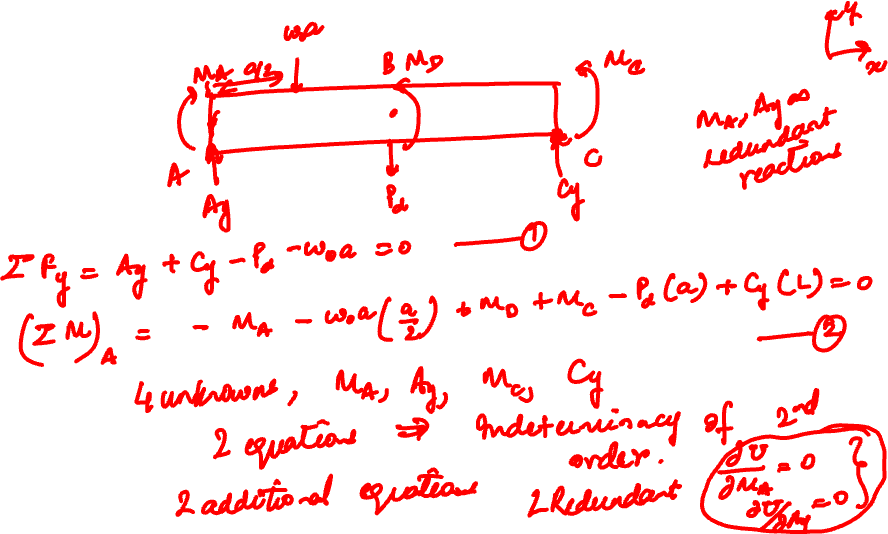 w₀a
y
x
M_A a/2
B M_D
M_C
A
C
A_y
P_d
C_y
M_A, A_y as
redundant
reactions
ΣF_y = A_y + C_y - P_d - w₀a = 0 — ①
(ΣM)_A = - M_A - w₀a(a/2) + M_D + M_C - P_d(a) + C_y(L) = 0
— ②
4 unknowns, M_A, A_y, M_C, C_y
2 equations ⇒ Indeterminacy of 2nd
order.
2 additional equations 2 Redundant
∂U/∂M_A = 0
∂U/∂A_y = 0